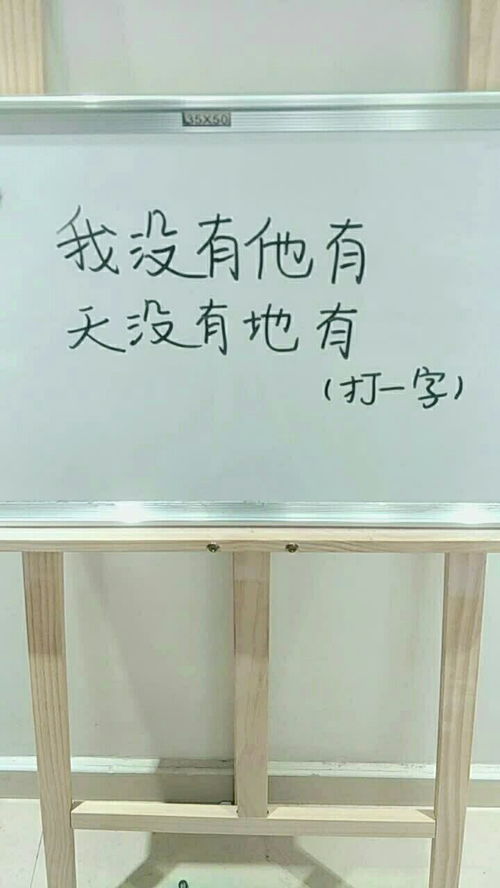 35X50
我没有他有
天没有地有
(打一字)